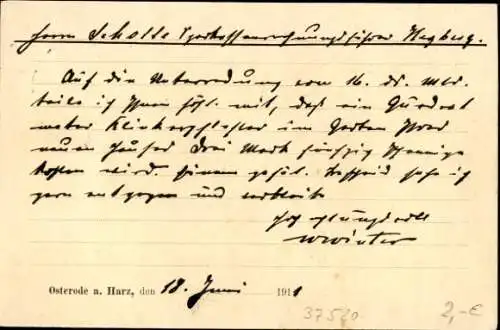 Herrn Scholle Sparkassenrechnungsführer
Auf die Unterredung vom 16. ds. Mts.
teile ich Ihnen höfl. mit, daß ein Quadrat
meter Klinkerpflaster im Garten Ihres
neuen Hauses Drei Mark fünfzig Pfennige
kosten wird. Ihrem gefäl. Bescheid sehe ich
gern entgegen und verbleibe
hochachtungsvoll
W Winter
Osterode a. Harz, den 18. Juni 1911
37520 2,-€